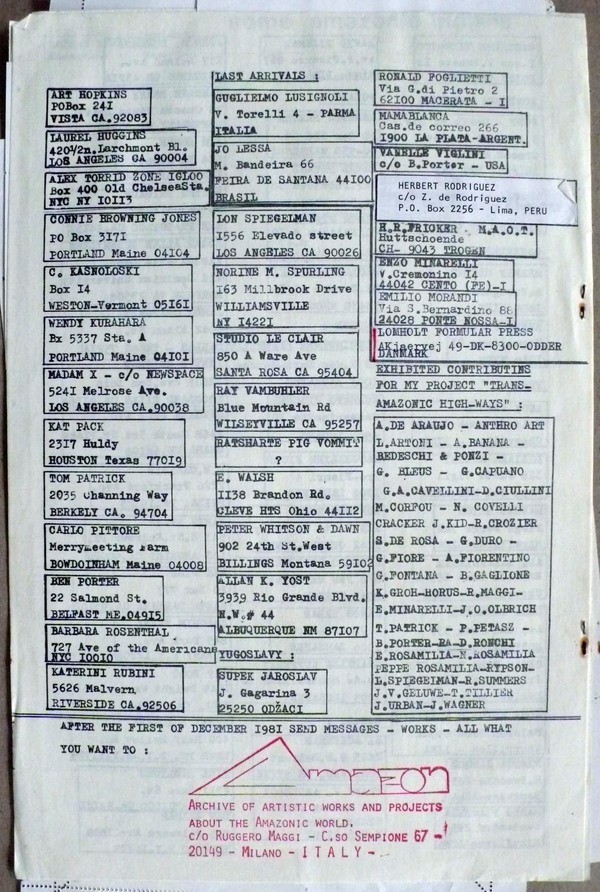 ART HOPKINS
POBox 24I
VISTA CA.92083
LAUREL HUGGINS
420½n.Larchmont Bl.
LOS ANGELES CA 90004
ALEX TORRID ZONE IGLOO
Box 400 Old ChelseaSta.
NYC NY IOII3
CONNIE BROWNING JONES
PO Box 3I7I
PORTLAND Maine 04I04
C. KASNOLOSKI
Box I4
WESTON-Vermont 05I6I
WENDY KURAHARA
Bx 5337 Sta. A
PORTLAND Maine 04IOI
MADAM X - c/o NEWSPACE
524I Melrose Ave.
LOS ANGELES CA.90038
KAT PACK
23I7 Huldy
HOUSTON Texas 770I9
TOM PATRICK
2035 Channing Way
BERKELY CA. 94704
CARLO PITTORE
Merrymeeting Farm
BOWDOINHAM Maine 04008
BEN PORTER
22 Salmond St.
BELFAST ME.049I5
BARBARA ROSENTHAL
727 Ave of the Americans
NYC IOOIO
KATERINI RUBINI
5626 Malvern
RIVERSIDE CA.92506
LAST ARRIVALS :
GUGLIELMO LUSIGNOLI
V. Torelli 4 - PARMA
ITALIA
JO LESSA
M. Bandeira 66
FEIRA DE SANTANA 44IOO
BRASIL
LON SPIEGELMAN
I556 Elevado street
LOS ANGELES CA 90026
NORINE M. SPURLING
I63 Millbrook Drive
WILLIAMSVILLE
NY I422I
STUDIO LE CLAIR
850 A Ware Ave
SANTA ROSA CA 95404
RAY VAMBUHLER
Blue Mountain Rd
WILSEYVILLE CA 95257
RATSHARTE PIG VOMMIT
?
E. WALSH
II38 Brandon Rd.
CLEVE HTS Ohio 44II2
PETER WHITSON & DAWN
902 24th St.West
BILLINGS Montana 59IO2
ALLAN K. YOST
3939 Rio Grande Blvd.
N.W.# 44
ALBUQUERQUE NM 87IO7
YUGOSLAVY :
SUPEK JAROSLAV
J. Gagarina 3
25250 ODŽACI
RONALD FOGLIETTI
Via G.di Pietro 2
62IOO MACERATA - I
MAMABLANCA
Cas.de correo 266
I900 LA PLATA-ARGENT.
VANELLE VIGLINI
c/o B.Porter - USA
HERBERT RODRIGUEZ
c/o Z. de Rodriguez
P.O. Box 2256 - Lima, PERU
H.R.FRICKER - M.A.O.T.
Huttschoende
CH- 9043 TROGEN
ENZO MINARELLI
V.Cremonino I4
44042 CENTO (FE)-I
EMILIO MORANDI
Via S.Bernardino 88
24028 PONTE NOSSA-I
LOMHOLT FORMULAR PRESS
Akjaervej 49-DK-8300-ODDER
DANMARK
EXHIBITED CONTRIBUTINS
FOR MY PROJECT "TRANS-
AMAZONIC HIGH-WAYS" :
A.DE ARAUJO - ANTHRO ART
L.ARTONI - A.BANANA -
BEDESCHI & PONZI -
G. BLEUS - G.CAPUANO
G.A.CAVELLINI-D.CIULLINI
M.CORFOU - N. COVELLI
CRACKER J.KID-R.CROZIER
S.DE ROSA - G.DURO -
G.FIORE - A.FIORENTINO
G.FONTANA - B.GAGLIONE
K.GROH-HORUS-R.MAGGI-
E.MINARELLI-J.O.OLBRICH
T.PATRICK - P.PETASZ -
B.PORTER-RA-D.RONCHI
E.ROSAMILIA-N.ROSAMILIA
PEPPE ROSAMILIA-RYPSON-
L.SPIEGELMAN-R.SUMMERS
J.V.GELUWE-T.TILLIER
J.URBAN-J.WAGNER
AFTER THE FIRST OF DECEMBER I98I SEND MESSAGES - WORKS - ALL WHAT
YOU WANT TO :
Amazon
ARCHIVE OF ARTISTIC WORKS AND PROJECTS
ABOUT THE AMAZONIC WORLD.
c/o RUGGERO MAGGI - C.SO SEMPIONE 67 -
20149 - MILANO - ITALY -